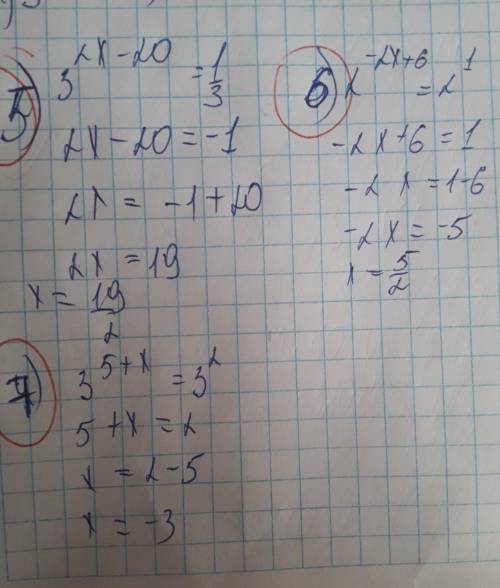 5) 3^{2x-20} = 1/3
2x-20 = -1
2x = -1+20
2x = 19
x = 19/2
6) 2^{-2x+6} = 2^1
-2x+6 = 1
-2x = 1-6
-2x = -5
x = 5/2
7) 3^{5+x} = 3^2
5+x = 2
x = 2-5
x = -3